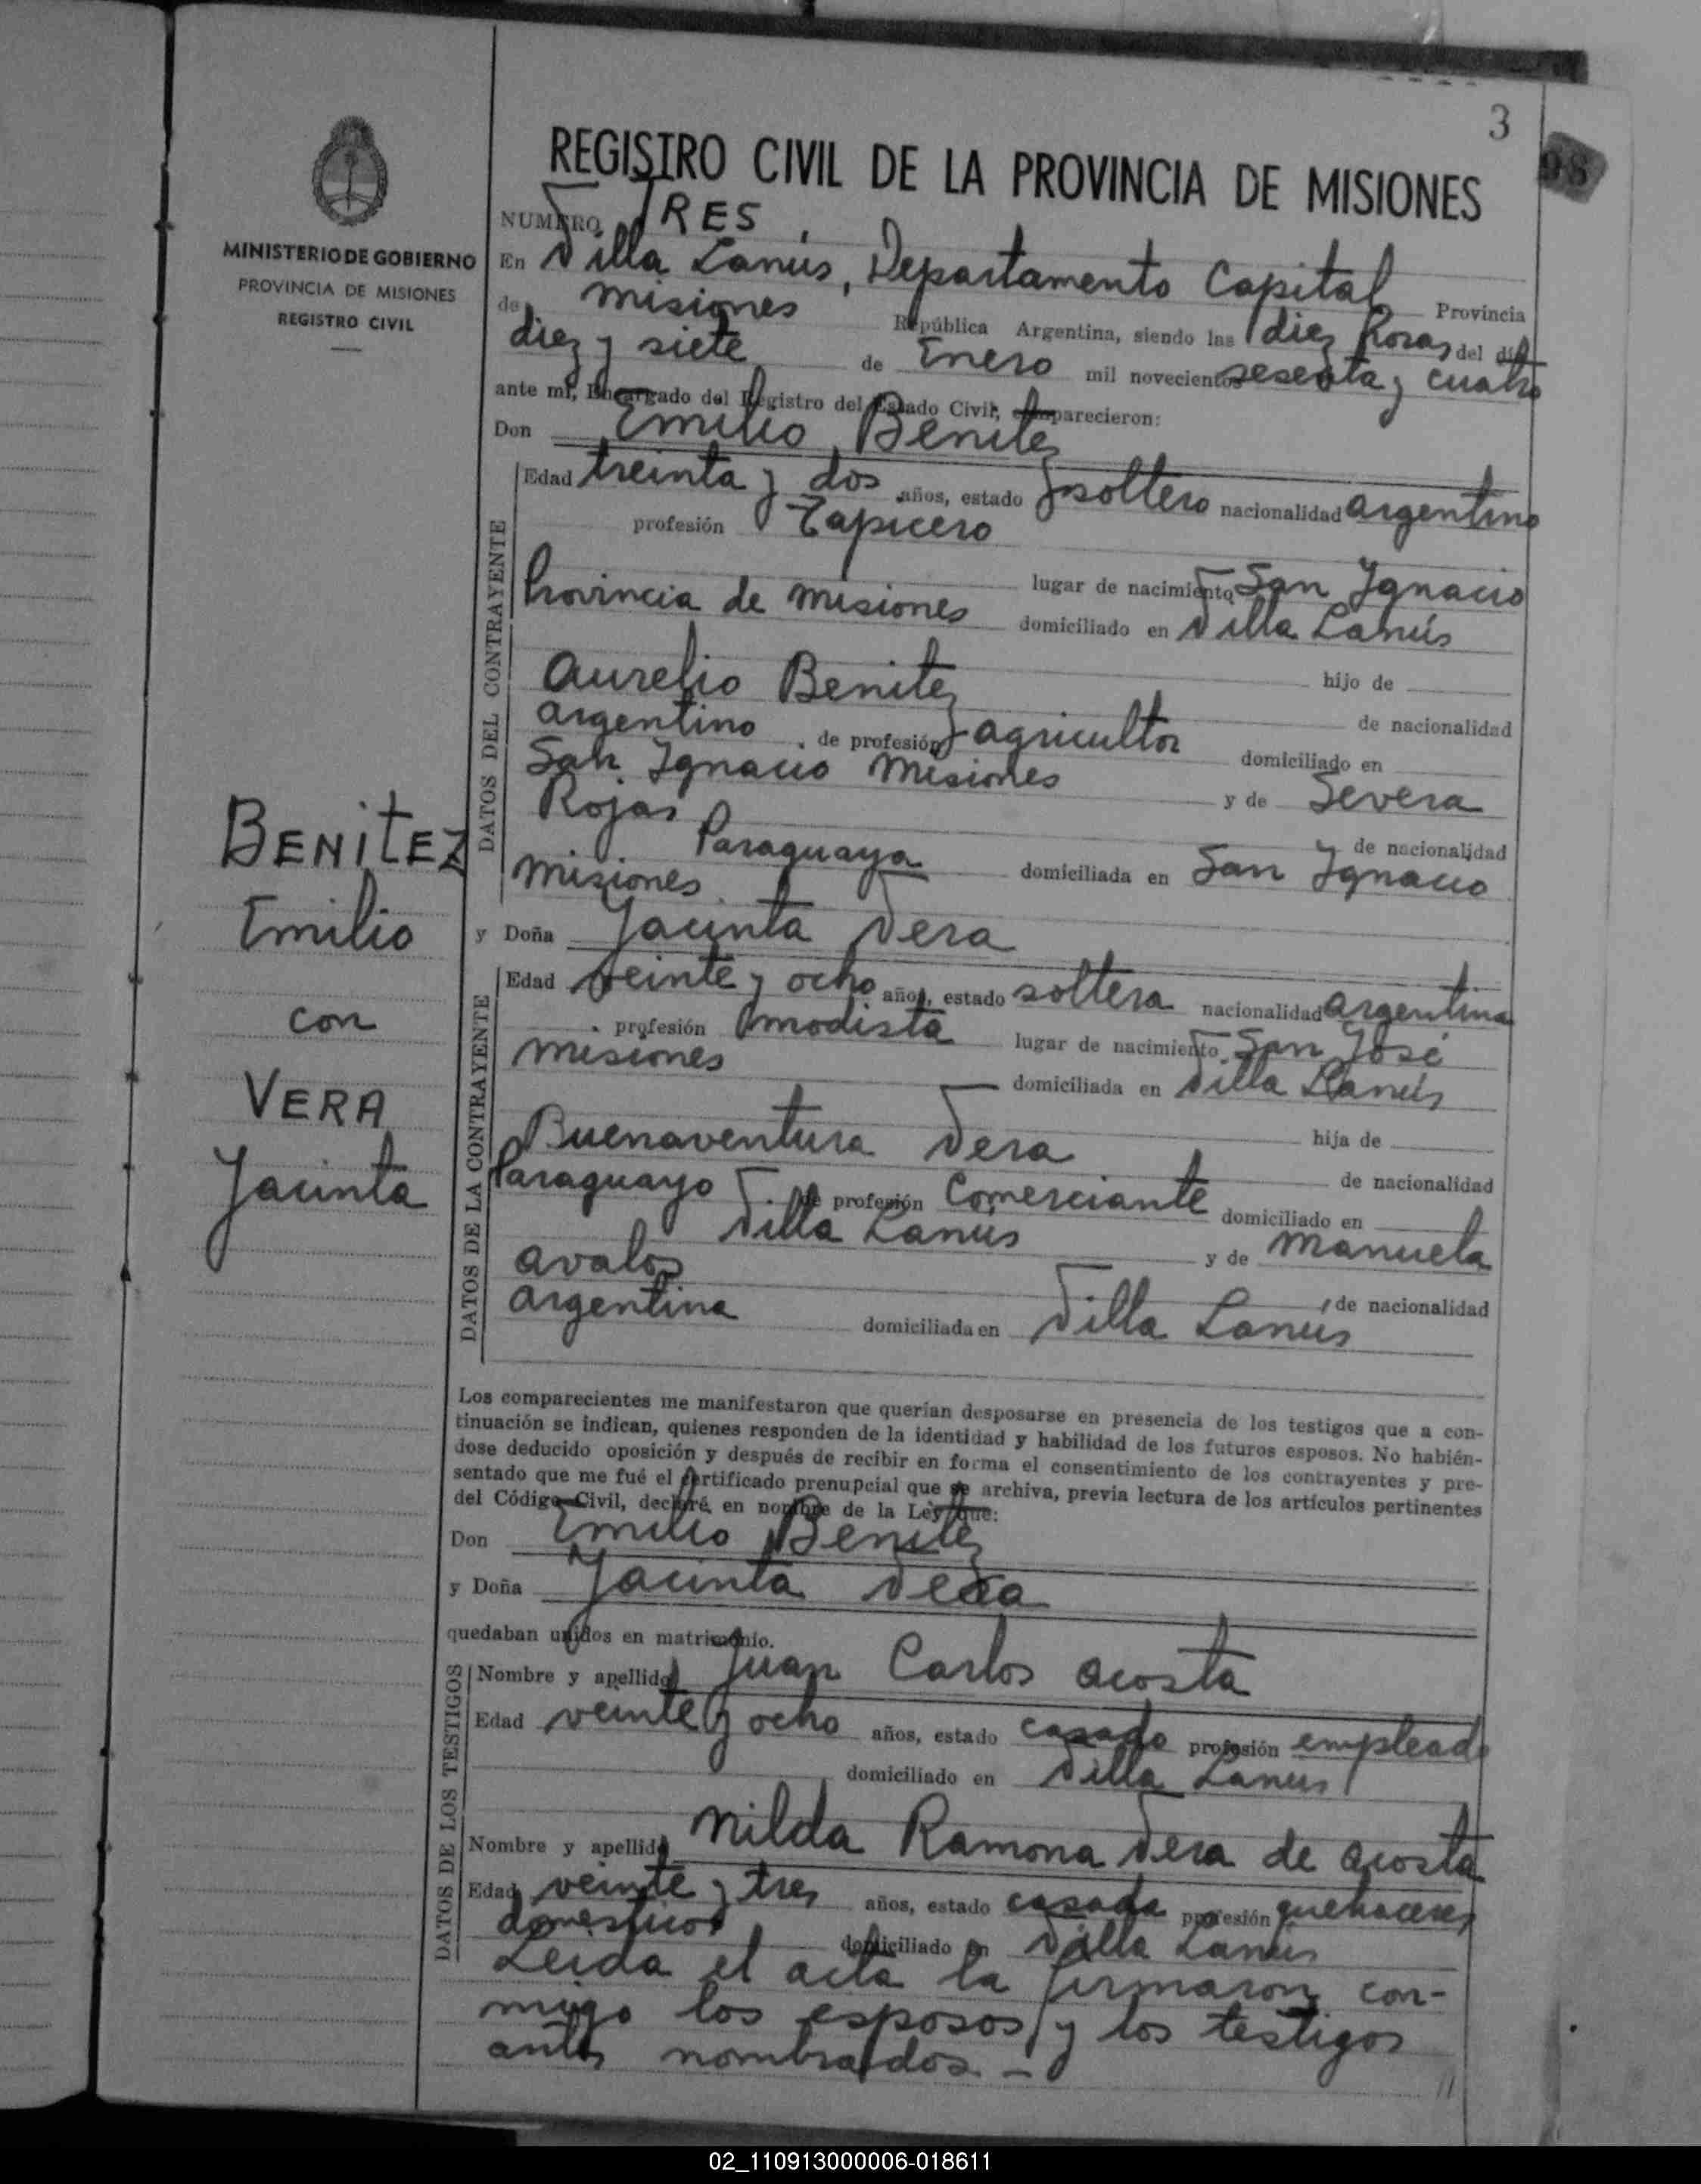 3
98
REGISTRO CIVIL DE LA PROVINCIA DE MISIONES
MINISTERIO DE GOBIERNO
PROVINCIA DE MISIONES
REGISTRO CIVIL
NUMERO TRES,
En Villa Lanús, Departamento Capital Provincia
de Misiones República Argentina, siendo las diez horas del día
diez y siete de Enero mil novecientos sesenta y cuatro
ante mí, Encargado del Registro del Estado Civil, comparecieron:
Don Emilio Benitez
DATOS DEL CONTRAYENTE
Edad treinta y dos años, estado soltero nacionalidad argentino
profesión Tapicero
lugar de nacimiento San Ignacio
Provincia de Misiones domiciliado en Villa Lanús
hijo de
Aurelio Benitez
de nacionalidad
argentino de profesión agricultor domiciliado en
San Ignacio Misiones y de Severa
Rojas de nacionalidad
Paraguaya domiciliada en San Ignacio
Misiones
BENITEZ
Emilio
con
VERA
Jacinta
y Doña Jacinta Vera
DATOS DE LA CONTRAYENTE
Edad veinte y ocho años, estado soltera nacionalidad argentina
profesión modista lugar de nacimiento San José
Misiones domiciliada en Villa Lanús
hija de
Buenaventura Vera
de nacionalidad
Paraguayo de profesión Comerciante domiciliado en
Villa Lanús y de Manuela
Avalos
de nacionalidad
argentina domiciliada en Villa Lanus
Los comparecientes me manifestaron que querían desposarse en presencia de los testigos que a con-
tinuación se indican, quienes responden de la identidad y habilidad de los futuros esposos. No habién-
dose deducido oposición y después de recibir en forma el consentimiento de los contrayentes y pre-
sentado que me fué el certificado prenupcial que se archiva, previa lectura de los artículos pertinentes
del Código Civil, declaré en nombre de la Ley que:
Don Emilio Benitez
y Doña Jacinta Vera
quedaban unidos en matrimonio.
DATOS DE LOS TESTIGOS
Nombre y apellido Juan Carlos Acosta
Edad veinte y ocho años, estado casado profesión empleado
domiciliado en Villa Lanus
Nombre y apellido Nilda Ramona Vera de Acosta
Edad veinte y tres años, estado casada profesión quehaceres
domesticos domiciliado en Villa Lanús
Leida el acta la firmaron con-
migo los esposos y los testigos
antes nombrados. -
//
02_110913000006-018611